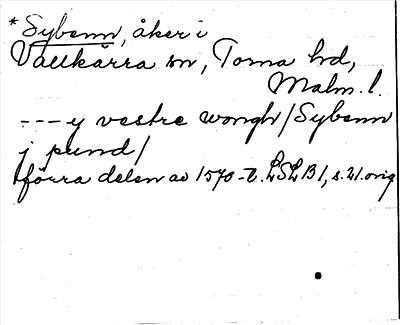 *Sybenn, åker i
Vallkärra sn, Torna hd,
Malm. l.
--- y vestre wongh/Sybenn
j pund/
förra delen av 1570-t. LSLB 1, s. 21. orig